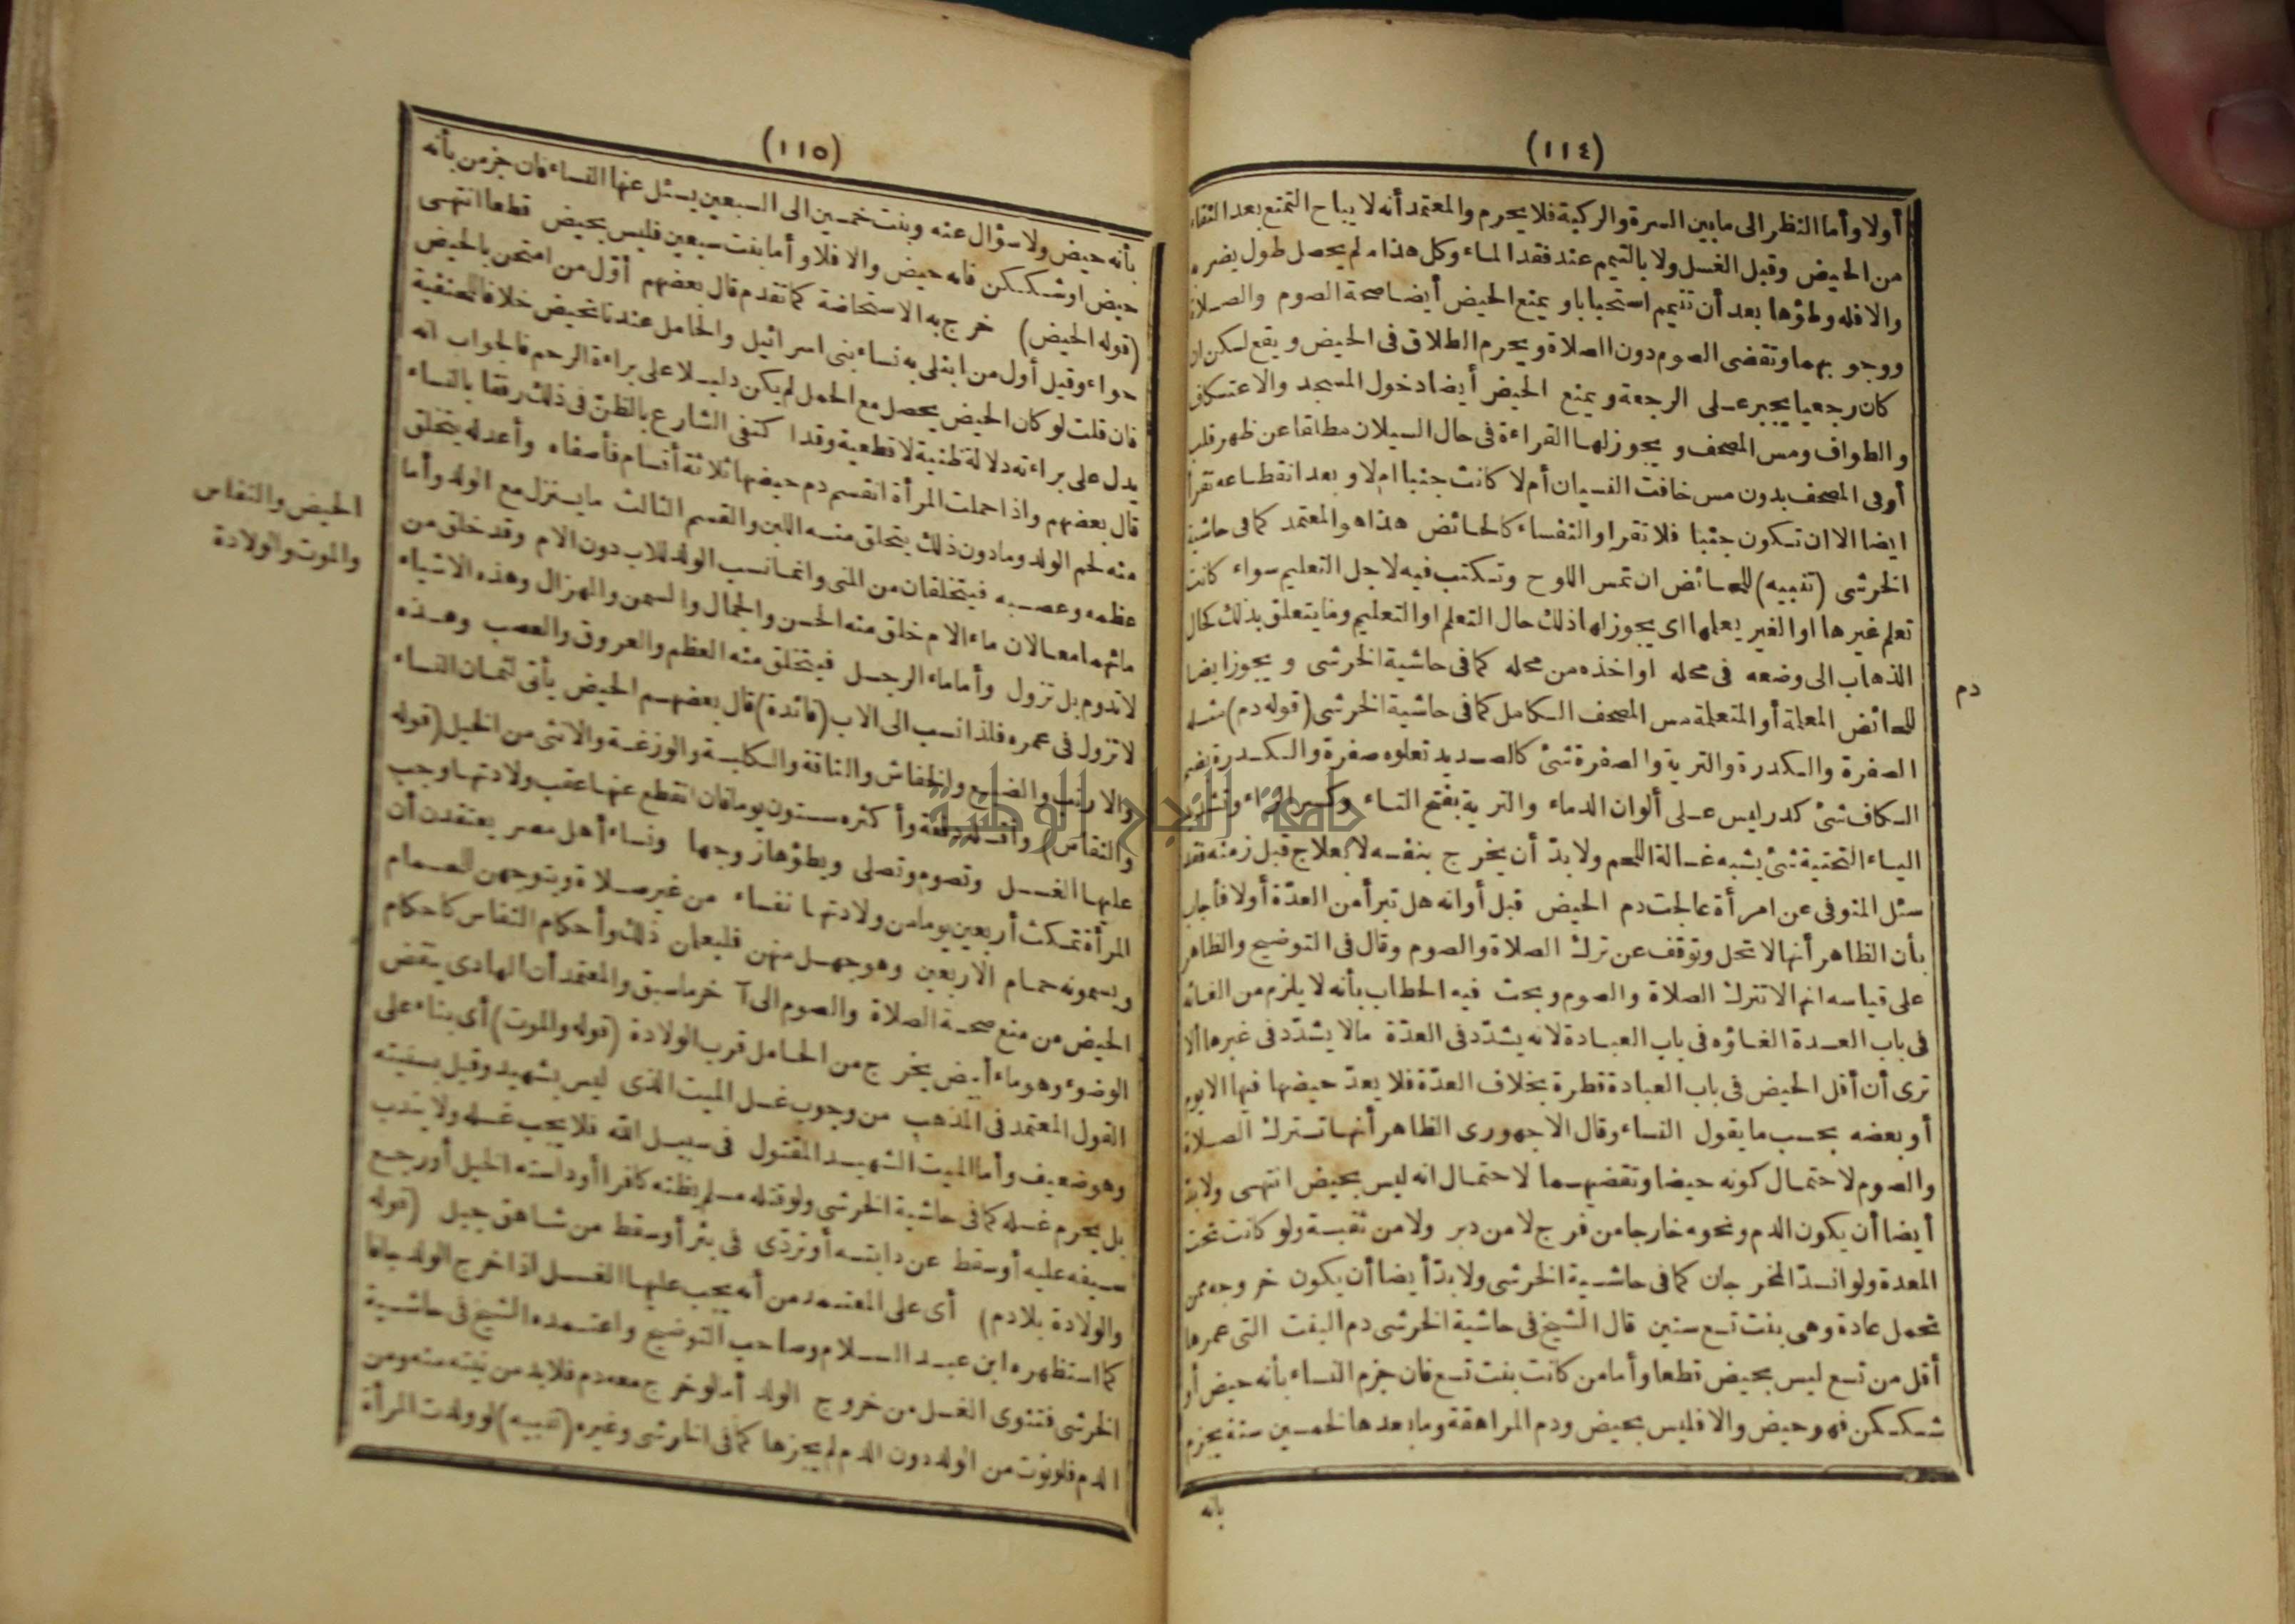 (١١٤)
أولا وأما النظر الى ما بين السرة والركبة فلا يحرم والمعتمد أنه لا يباح التمتع بعد النقاء
من الحيض وقبل الغسل ولا بالتيمم عند فقد الماء وكل هذا ما لم يحصل طول يضره
والا فله وطؤها بعد أن تتيمم استحبابا ويمنع الحيض أيضا صحة الصوم والصلاة
ووجوبهما وتقضى الصوم دون الصلاة ويحرم الطلاق فى الحيض ويقع لكن ان
كان رجعيا يجبر على الرجعة ويمنع الحيض أيضا دخول المسجد والاعتكاف
والطواف ومس المصحف ويجوز لها القراءة فى حال السيلان مطلقا عن ظهر قلب
أو فى المصحف بدون مس خافت النسيان أم لا كانت جنبا ام لا وبعد انقطاعه تقرأ
ايضا الا ان تكون جنبا فلا تقرا والنفساء كالحائض هذا هو المعتمد كما فى حاشية
الخرشى (تنبيه) للحائض ان تمس اللوح وتكتب فيه لاجل التعليم سواء كانت
تعلم غيرها او الغير يعلمها اى يجوز لها ذلك حال التعلم او التعليم وما يتعلق بذلك كحال
الذهاب الى وضعه فى محله او اخذه من محله كما فى حاشية الخرشى ويجوز ايضا
للحائض المعلمة أو المتعلمة مس المصحف الكامل كما فى حاشية الخرشى (قوله دم) مثله
دم
الصفرة والكدرة والترية والصفرة شئ كالصديد تعلوه صفرة والكدرة بضم
الكاف شئ كدر ليس على ألوان الدماء والترية بفتح التاء وكسر الراء وتشديد
الياء التحتية شئ يشبه غسالة اللحم ولا بدّ أن يخرج بنفسه لا بعلاج قبل زمنه فقد
سئل المنوفى عن امرأة عالجت دم الحيض قبل أوانه هل تبرأ من العدّة أولا فأجاب
بأن الظاهر أنها لا تحل وتوقف عن ترك الصلاة والصوم وقال فى التوضيح والظاهر
على قياسه انها لا تترك الصلاة والصوم وبحث فيه الحطاب بأنه لا يلزم من الغائه
فى باب العدة الغاؤه فى باب العبادة لانه يشدّد فى العدّة مالا يشدّد فى غيرها ألا
ترى أن أقل الحيض فى باب العبادة قطرة بخلاف العدّة فلا يعدّ حيضها فيها الا يوم
أو بعضه بحسب ما يقول النساء وقال الاجهورى الظاهر أنها تترك الصلاة
والصوم لاحتمال كونه حيضا وتقضيهما لاحتمال انه ليس بحيض انتهى ولا بد
أيضا أن يكون الدم ونحوه خارجا من فرج لا من دبر ولا من ثقبة ولو كانت تحت
المعدة ولو انسدّ المخرجان كما فى حاشية الخرشى ولا بدّ أيضا أن يكون خروجه ممن
تحمل عادة وهى بنت تسع سنين قال الشيخ فى حاشية الخرشى دم البنت التى عمرها
أقل من تسع ليس بحيض قطعا وأما من كانت بنت تسع فان جزم النساء بأنه حيض أو
شككن فهو حيض والا فليس بحيض ودم المراهقة وما بعدها لخمسين سنة يجزم
بانه
(١١٥)
بأنه حيض ولا سؤال عنه وبنت خمسين الى السبعين يسئل عنها النساء فان جزمن بأنه
حيض او شككن فانه حيض والا فلا وأما بنت سبعين فليس بحيض قطعا انتهى
(قوله الحيض) خرج به الاستحاضة كما تقدم قال بعضهم أوّل من امتحن بالحيض
حواء وقيل أول من ابتلى به نساء بنى اسرائيل والحامل عندنا تحيض خلافا للحنفية
فان قلت لو كان الحيض يحصل مع الحمل لم يكن دليلا على براءة الرحم فالجواب انه
يدل على براءته دلالة ظنية لا قطعية وقد اكتفى الشارع بالظنّ فى ذلك رفقا بالنساء
قال بعضهم واذا حملت المرأة انقسم دم حيضها ثلاثة أقسام فأصفاه وأعدله يتخلق
منه لحم الولد وما دون ذلك يتخلق منه اللبن والقسم الثالث ما ينزل مع الولد وأما
عظمه وعصبه فيتخلقان من المنى وانما نسب الولد للاب دون الام وقد خلق من
مائهما معا لان ماء الام خلق منه الحسن والجمال والسمن والهزال وهذه الاشياء
لا تدوم بل تزول وأما ماء الرجل فيتخلق منه العظم والعروق والعصب وهذه
لا تزول فى عمره فلذا نسب الى الاب (فائدة) قال بعضهم الحيض يأتى لثمان النساء
والارنب والضبع والخفاش والناقة والكلبة والوزغة والانثى من الخيل (قوله
والنفاس) وأقله دفعة وأكثره ستون يوما فان انقطع عنها عقب ولادتها وجب
عليها الغسل وتصوم وتصلى ويطؤها زوجها ونساء أهل مصر يعتقدن أن
المرأة تمكث أربعين يوما من ولادتها نفساء من غير صلاة ويتوجهن للحمام
ويسمونه حمام الاربعين وهو جهل منهن فليعلمن ذلك وأحكام النفاس كاحكام
الحيض من منع صحة الصلاة والصوم الى آخر ما سبق والمعتمد أن الهادى ينقض
الوضوء وهو ماء أبيض يخرج من الحامل قرب الولادة (قوله والموت) أى بناء على
القول المعتمد فى المذهب من وجوب غسل الميت الذى ليس بشهيد وقيل بسنيته
وهو ضعيف وأما الميت الشهيد المقتول فى سبيل الله فلا يجب غسله ولا يندب
بل يحرم غسله كما فى حاشية الخرشى ولو قتله مسلم يظنه كافرا أو داسته الخيل أو رجع
سيفه عليه أو سقط عن دابته أو تردّى فى بئر أو سقط من شاهق جبل (قوله
والولادة بلا دم) أى على المعتمد من أنه يجب عليها الغسل اذا خرج الولد جافا
كما استظهره ابن عبد السلام وصاحب التوضيح واعتمده الشيخ فى حاشية
الخرشى فتنوى الغسل من خروج الولد أما لو خرج معه دم فلا بد من نيته منه ومن
الدم فلو نوت من الولد دون الدم لم يجزها كما فى الخرشى وغيره (تنبيه) لو ولدت المرأة
الحيض والنفاس
والموت والولادة
جامعة النجاح الوطنية